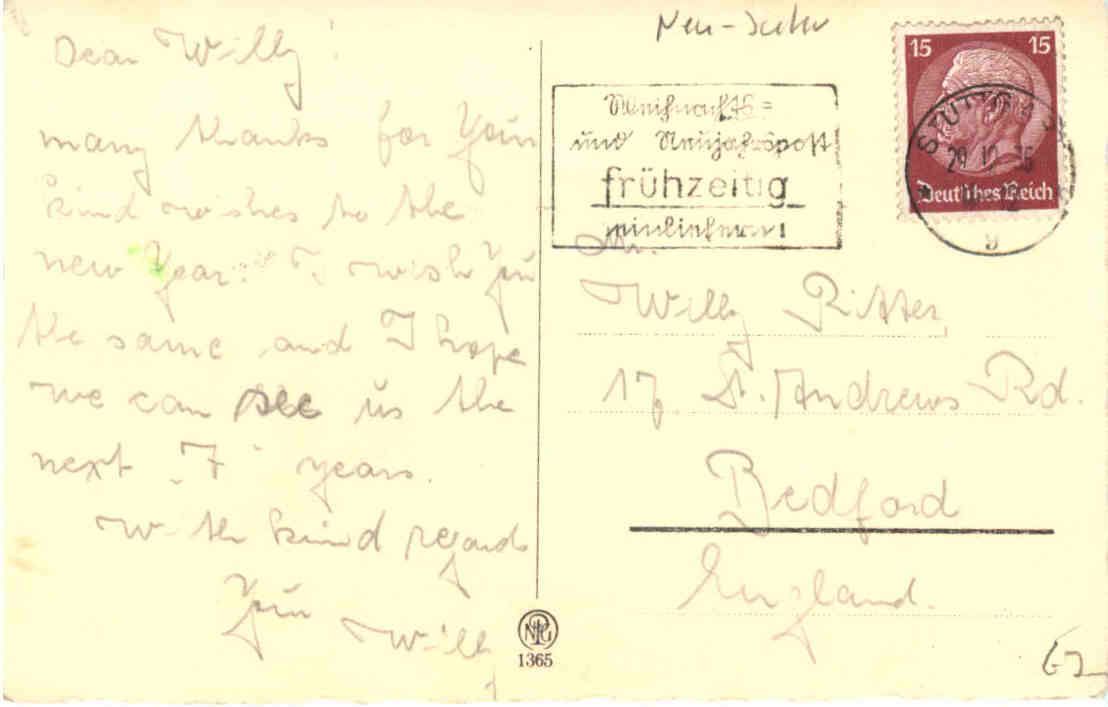 Dear Willy!
many thanks for Your
kind wishes to the
new Year. I wish You
the same and I hope
we can see us the
next „7“ years.
With kind regards
Your
Willy
15 15
Deutsches Reich
STUTTGART
29.12.36
9
Weihnachts=
und Neujahrspost
frühzeitig
einliefern!
Mr.
Willy Ritter,
17. St. Andrews Rd.
Bedford
England.
NPG
1365